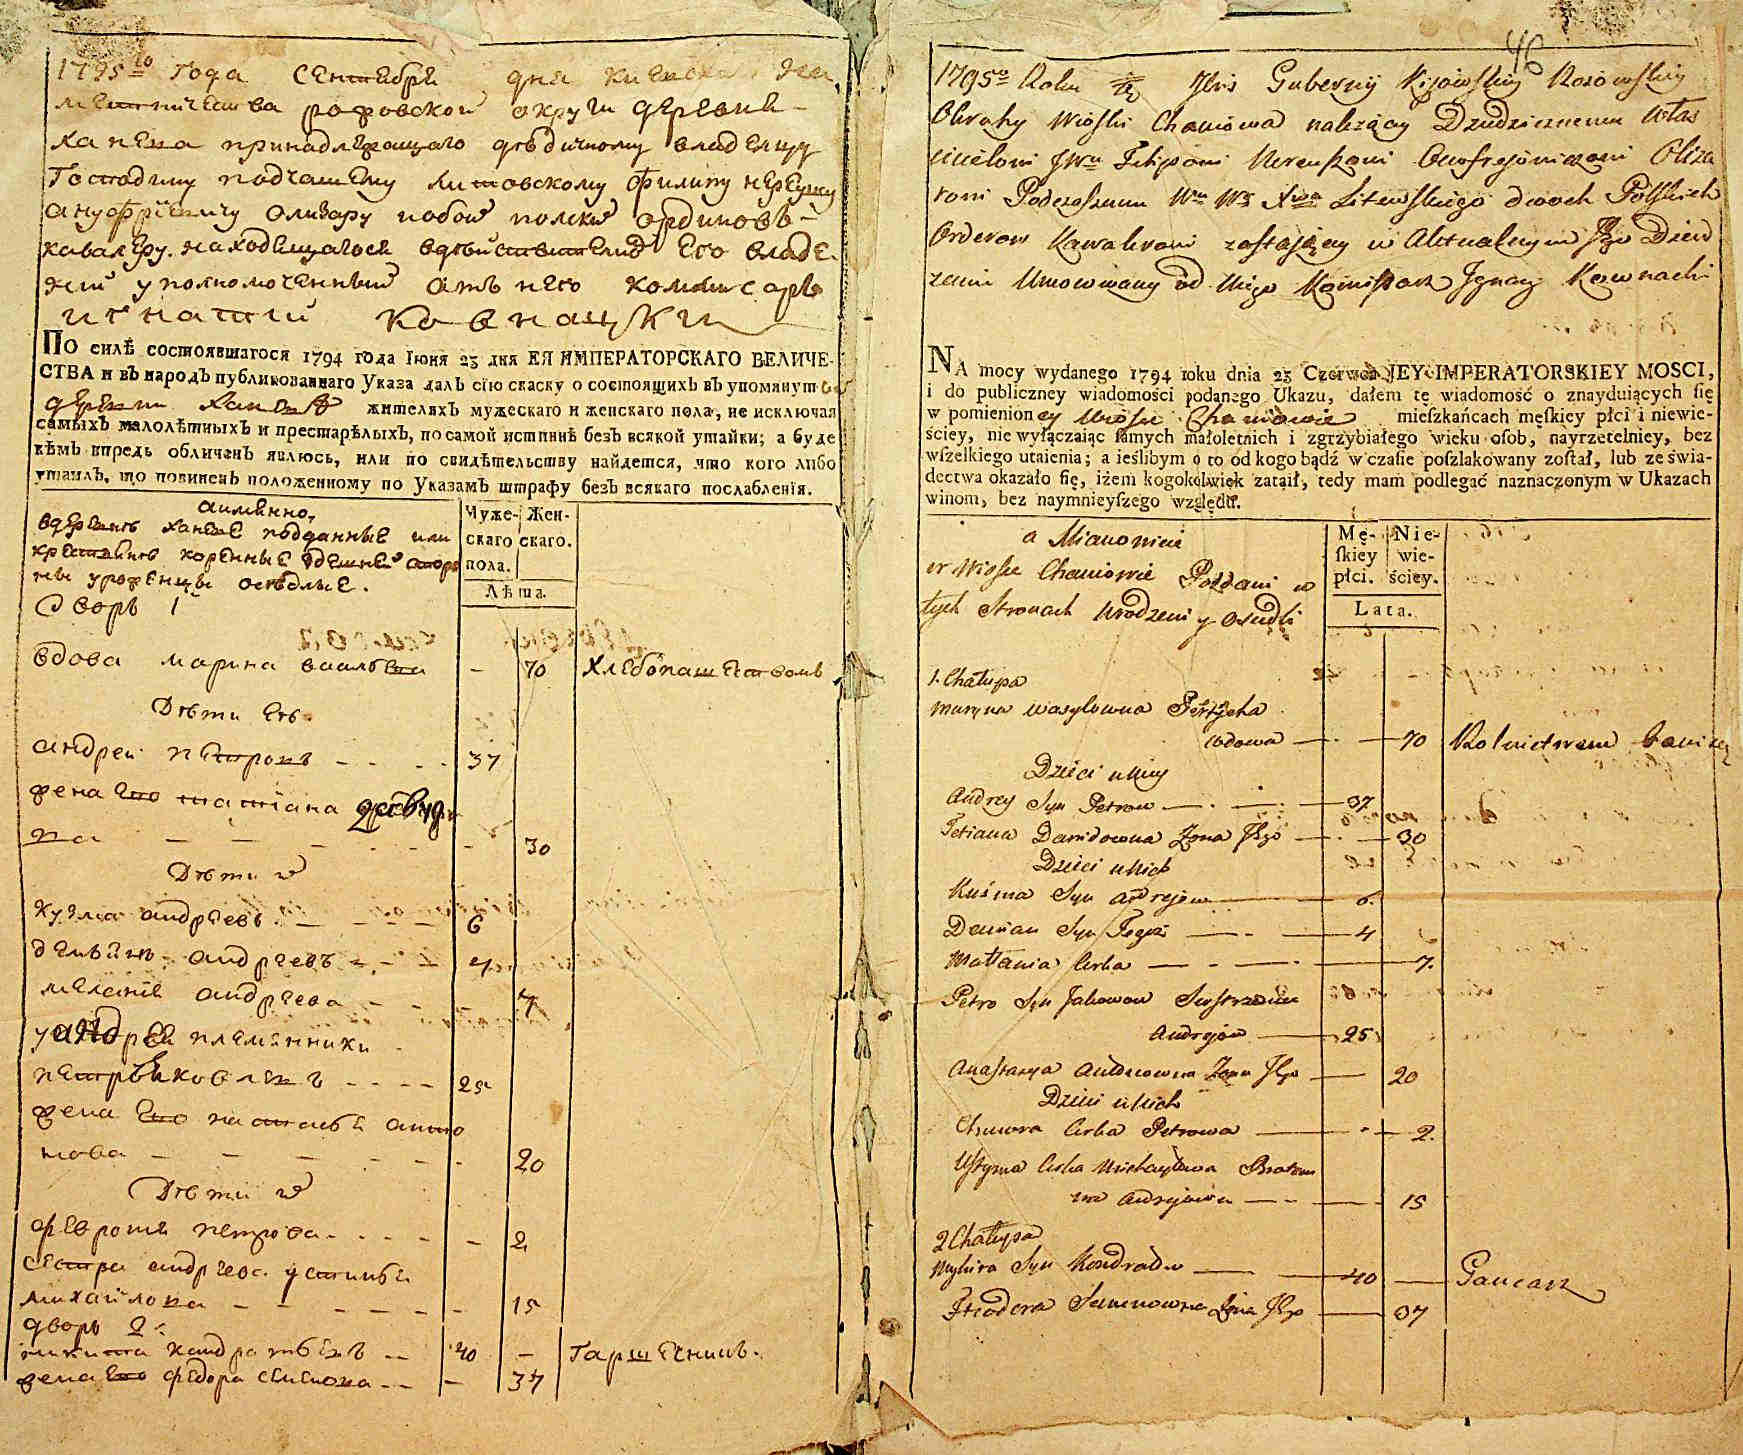 1795го года Сентебре дня Киевска На
местничества рожовской округи деревне
Ханева принадлежащаго дѣдичному владелцу
Господину подчашему литовскому Филипу Нереушу
ануфрїевичу Олизару побои полски ординовъ
кавалеру. находещагося вдѣйствително его владе
нїи уполномоченный атъ него комисаръ
игнатий Ковнацки
ПО силѣ состоявшагося 1794 года Iюня 23 дня ЕЯ ИМПЕРАТОРСКАГО ВЕЛИЧЕ-
СТВА и въ народъ публикованнаго Указа далъ сїю скаску о состоящихъ въ упомянутой
деревни Ханева жителяхъ мужескаго и женскаго пола, не исключая
самыхъ малолѣтныхъ и престарѣлыхъ, по самой истиннѣ безъ всякой утайки; а буде
кѣмъ впредь обличенъ явлюсь, или по свидѣтельству найдется, что кого либо
утаилъ, то повиненъ положенному по Указамъ штрафу безъ всякаго послабленїя.
аименно,
вдеревнѣ ханеве подданные или
крестьянѣ коренные здешней сторо
ны уроженцы оседлые.
Дворъ 1
Муже- Жен-
скаго скаго.
пола.
Лѣта.
вдова марина васильева — 70 Хлебопашествомъ
Дѣти еѣ
андреи петровъ 37
жена его татiана давидо
на 30
Дѣти ихъ
кузма андреевъ 6
демьянъ андреевъ 4
меланiе андреева 7
у андрея племянники
петръ яковлевъ 25
жена его настасья анто
нова 20
Дѣти ихъ
феврония петрова — 2
сестра андреева устинья
михайлова 15
дворъ 2:
никита кандратьевъ 40 — Гаршечникъ.
жена его федора семенова — 37
46
1795го Roku Gubernij Kijowskiey Rozowskiey
Okrahy Wioski Chaniowa należącey Dziedzicznemu Włas
cicielowi JWu Filipowi Nereuszowi Onofrejowiczowi Oliza
rowi Podczaszemu WWX Litewskiego dwoch Polskich
Orderow Kawalerowi zostającey w Aktualnym Jego Dzier
żeniu Umocowany od Niego Komissarz Ignacy Kownacki
NA mocy wydanego 1794 roku dnia 23 Czerwca JEY IMPERATORSKIEY MOSCI,
i do publiczney wiadomości podanego Ukazu, dałem tę wiadomość o znayduiących się
w pomienioney Wiosce Chaniowie mieszkańcach męskiey płci i niewie-
ściey, nie wyłączaiąc samych małoletnich i zgrzybiałego wieku osob, nayrzetelniey, bez
wszelkiego utaienia; a ieślibym o to od kogo bądź w czasie poszlakowany został, lub ze świa-
dectwa okazało się, iżem kogokolwiek zataił, tedy mam podlegać naznaczonym w Ukazach
winom, bez naymnieyszego względu.
a Mianowicie
w Wiosce Chaniowie Poddani w
tych Stronach Urodzeni y Osiedli
Mę- Nie-
skiey wie-
płci. ściey.
Lata.
1. Chałupa
Maryna Wasylowna Petrycha
wdowa 70 Rolnictwem bawiący
Dzieci u Niey
Andrey Syn Petrow 37
Tetiana Dawidowna Zona Jego 30
Dzieci u Nich
Kuśma Syn Andrejow 6.
Demian Syn Tegoż 4
Małania Corka 7.
Petro Syn Jakowow Siostrzeniec
Andreja 25
Anastazya Antonowna Zona Jego 20
Dzieci u Nich
Chwora Corka Petrowa 2.
Ustyma Corka Michayłowa Bratow
na Andrejowa 15
2 Chałupa
Mykita Syn Kondratow 40 Gancarz
Theodora Semenowna Zona Jego 37